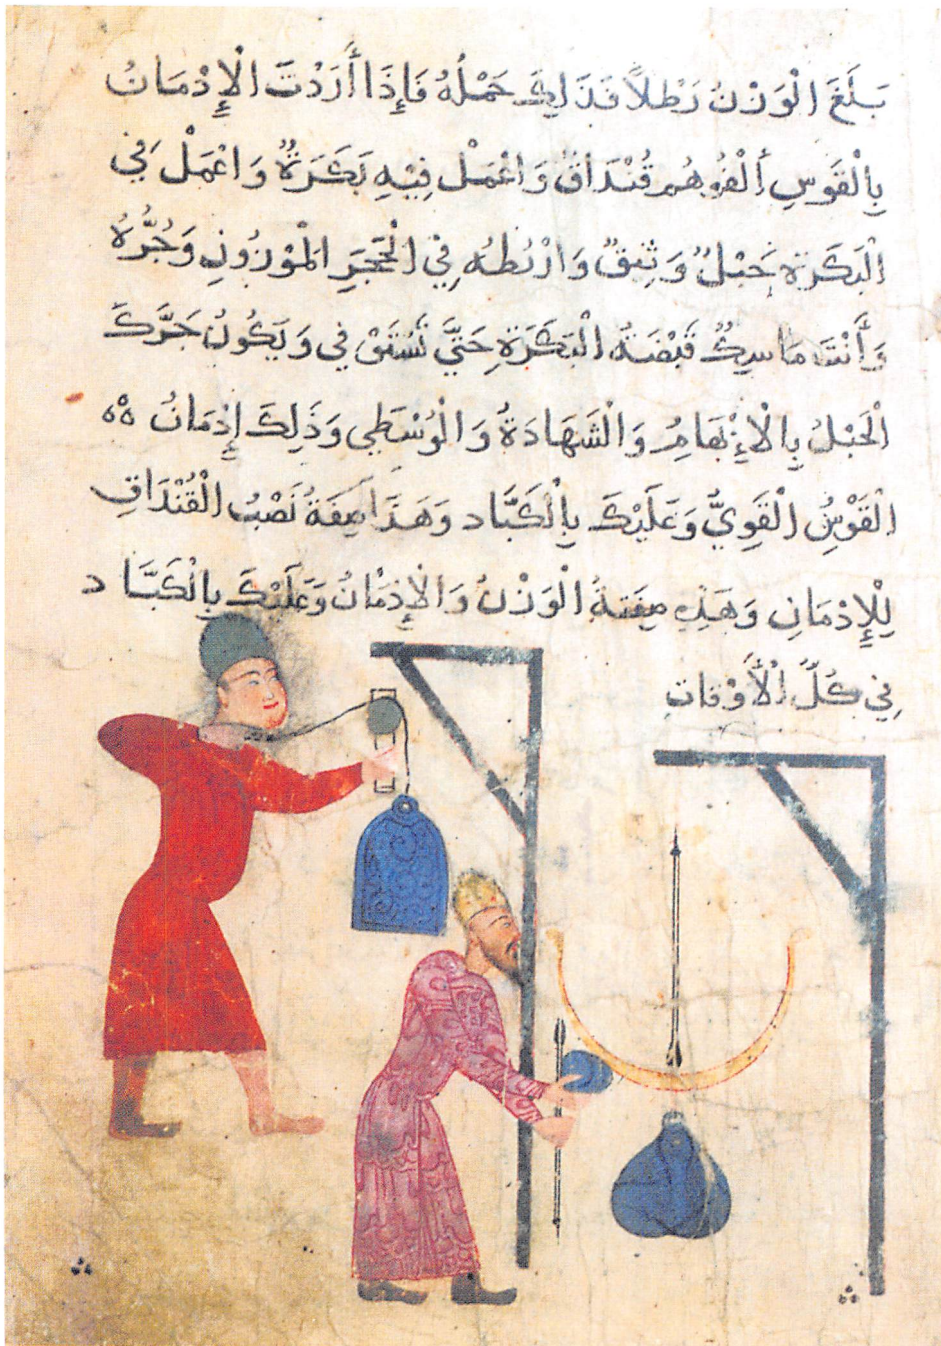 بَلَغَ الْوَزْنُ رَطْلاً فَذَلِكَ حَمْلُهُ فَإِذَا أَرَدْتَ الْإِدْمَانُ
بِالْقَوَسِ الْفُوهُم قُنْدَاقٌ وَاعْمَلْ فِيْهِ بَكَرَةٌ وَاعْمَلْ فِي
الْبَكَرَةِ حَبْلٌ وَثِيقٌ وَارْبُطْهُ فِي الْحَجَرِ الْمَوْزُونِ وَجُرُّهُ
وَأَنْتَ مَاسِكٌ قَبْضَةُ الْبَكَرَةِ حَتَّى تَسْتَوْفِي وَيَكُونُ جَرَّكَ
الْحَبْلُ بِالْإِبْهَامِ وَالْشَهَادَةُ وَالْوُسْطَى وَذَلِكَ إِدْمَانُ
الْقَوْسِ الْقَوِيَّ وَعَلَيْكَ بِالْكَبَّاد وَهَذَا صِفَةُ نَصْبُ الْقُنْدَاقِ
لِلْإِدْمَانِ وَهَذِهِ صِفَةُ الْوَزْنُ وَالْإِدْمَانُ وَعَلَيْكَ بِالْكَبَّاد
فِي كُلِّ الْأَوْقَاتِ